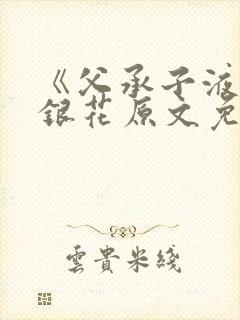 《父承子液
銀花原文免
雲貴米綫